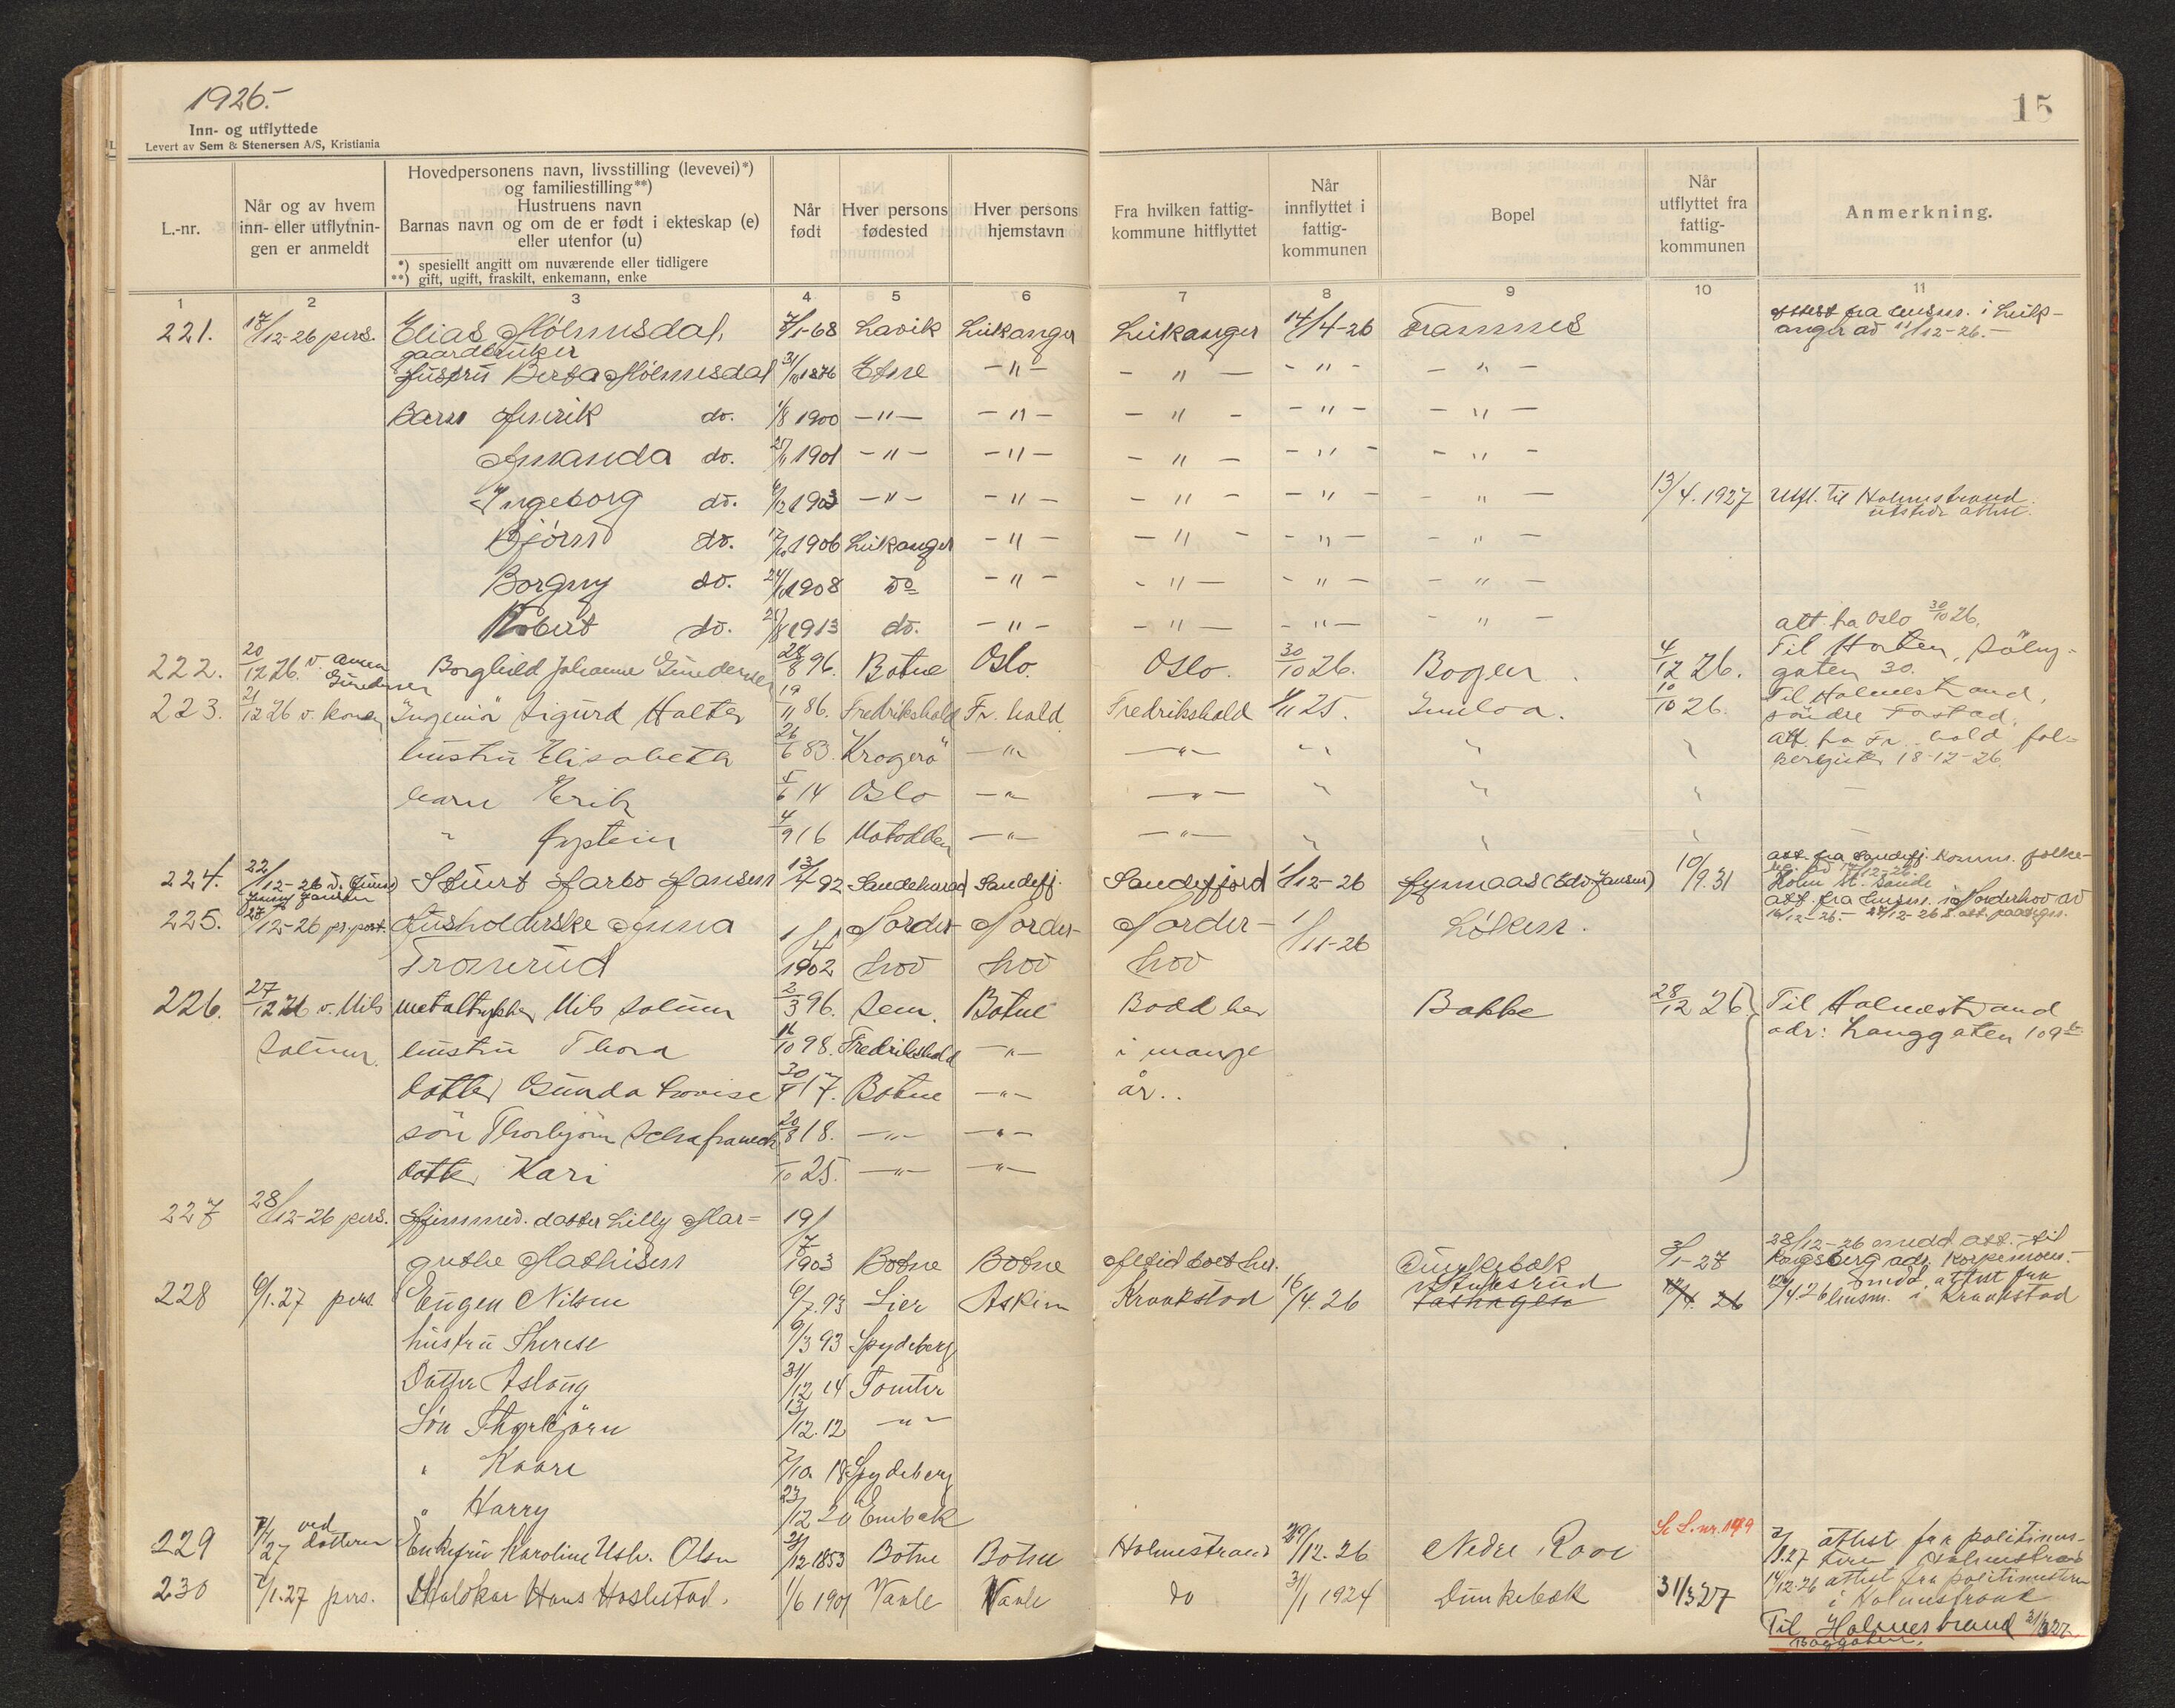 1926.-
15
Inn- og utflyttede
Levert av Sem & Stenersen A/S, Kristiania
L.-nr.
Når og av hvem inn- eller utflytningen er anmeldt
Hovedpersonens navn, livsstilling (levevei)*)
og familiestilling**)
Hustruens navn
Barnas navn og om de er født i ekteskap (e)
eller utenfor (u)
*) spesiellt angitt om nuværende eller tidligere
**) gift, ugift, fraskilt, enkemann, enke
Når født
Hver persons fødested
Hver persons hjemstavn
Fra hvilken fattigkommune hitflyttet
Når innflyttet i fattigkommunen
Bopel
Når utflyttet fra fattigkommunen
Anmerkning.
1 2 3 4 5 6 7 8 9 10 11
221. 17/12-26 pers. Elias Hólmesdal, 7/1-68 Lavik Leikanger Leikanger 14/4-26 Framnes attest fra lensm. i Leik-
gaardbruker anger ad 11/12-26.-
Hustru Berta Hólmesdal 31/10 1876 Etne -"- -"- -"- -"-
Barn Henrik do. 1/8 1900 -"- -"- -"- -"- -"-
Amanda do. 1901 -"- -"- -"- -"- -"-
Ingeborg do. 1903 -"- -"- -"- -"- -"- 13/4.1927 Utfl. til Holmestrand.
utstedt attest.
Bjórn do. 1906 Leikanger -"- -"- -"- -"-
Borgny do. 1908 do -"- -"- -"- -"-
Robert do. 1913 do. -"- -"- -"- -"-
att. fra Oslo 30/10 26.
222. 20/12 26. v. Anna Gundersen Borghild Johanne Gundersen 28/8 96. Botne Oslo. Oslo. 30/10 26. Bogen. 4/12 26. Til Horten,
gaten 30.
223. 21/12 26 v. konen Ingeniör Sigurd Halter 19/11 86. Fredrikshald Fr. hald Fredrikshald 1/11 25. 10/10 26. Til Holmestrand,
söndre Tastad.
hustru Elisabeth 26/6 83. Kragerö -"- -"- " " " att. fra Fr. hald fol-
keregister 18-12-26.
barn Erik 4/6 14 Oslo -"- -"- " " "
" Øystein 4/9 16 Notodden -"- -"- " " "
224. 22/12-26 Jenny Jansen Hansen 13/4-92 Sandeherad Sandefj. Sandefjord 1/12-26 (Edv. Jansen) 10/9.31 att. fra Sandefj. komm. folke-
Holm st. Sande
225. 28/12-26 pr. post. Husholderske Anna 1/4 Norder- Norder- Norder- 1/11-26 Lókken. att. fra lensm. i Norderhov ad
Tronrud 1902 hov hov hov 16/12-26.- 28/12-26
226. 27/12 26 v. Nils Solum Nils Solum 2/3 96. Sem. Botne Bodd her Bakke 28/12 26. Til Holmestrand
hustru Thora 16/10 98. Fredrikshald -"- i mange adr: Langgaten 109
datter Gunda Lovise 30/4 17. Botne -"- år..
sön Thorbjörn 20/8 18. -"- -"-
datter Kari /10 25. -"- -"-
227 28/12-26 pers. Hjemmev. datter Lilly Mar= 19/7
grethe Mathisen 1903 Botne Botne Altid boet her. Dunkebæk 3/1-27 28/12-26 medd. att.- til
Kongsberg adr.
228 6/1.27 pers. Eugen Nilsen 6/7.93 Lier Askim Kraakstad 16/4.26 12/4.26 medd. attest fra
lensm. i Kraakstad
hustru Therese 9/3 93 Spydeberg
Datter Aslaug 31/12 14 Tomter
Sön Thorbjörn 13/12.12 -"-
" Kaare 7/10 18 Spydeberg
" Harry 23/12 20 Enebak
229 7/1 27 ved datteren Enkefru Karoline Olsen 24/12 1853 Botne Botne Holmestrand 29/12.26 Nedre Rove Se L.nr. 149 3/1.27 attest fra politimes-
teren i Holmestrand
230 7/1.27 pers. Hans Haslestad. 1/6 1901 Vaale Vaale do 31/1 1924 Dunkebæk 31/3 27 14/12-26 attest fra politimesteren
i Holmestrand
Til Holmestrand 31/3 27.